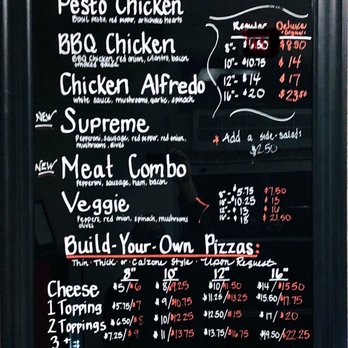 Pesto Chicken
Basil pesto, red pepper, artichoke hearts
BBQ Chicken
BBQ Chicken, red onion, cilantro, bacon
smoked gouda
Chicken Alfredo
white sauce, mushrooms, garlic, spinach
Regular Deluxe
8"- $6.50 $8.50
10"- $10.75 $14
12"- $14 $17
16"- $20 $23.50
NEW Supreme
Pepperoni, sausage, red pepper, red onion,
mushrooms, olives
Add a side-salad
$2.50
NEW Meat Combo
Pepperoni, sausage, ham, bacon
Veggie
Peppers, red onion, spinach, mushrooms
olives
8"- $5.75 $7.50
10"- $10.25 $13
12"- $13 $16
16"- $18 $21.50
Build-Your-Own Pizzas:
Thin-Thick or Calzone Style - Upon Request
8" 10" 12" 16"
Cheese $5/$6 $8/9.25 $10/11.50 $14/$15.50
1 Topping $5.75/$7 $9/$10.75 $11.25/$13.25 $15.50/$17.75
2 Toppings $6.50/$8 $10/$12.25 $12.50/$15 $17/$20
3+ $7.25/$9 $11/$13.75 $13.75/$16.75 $19.50/22.25